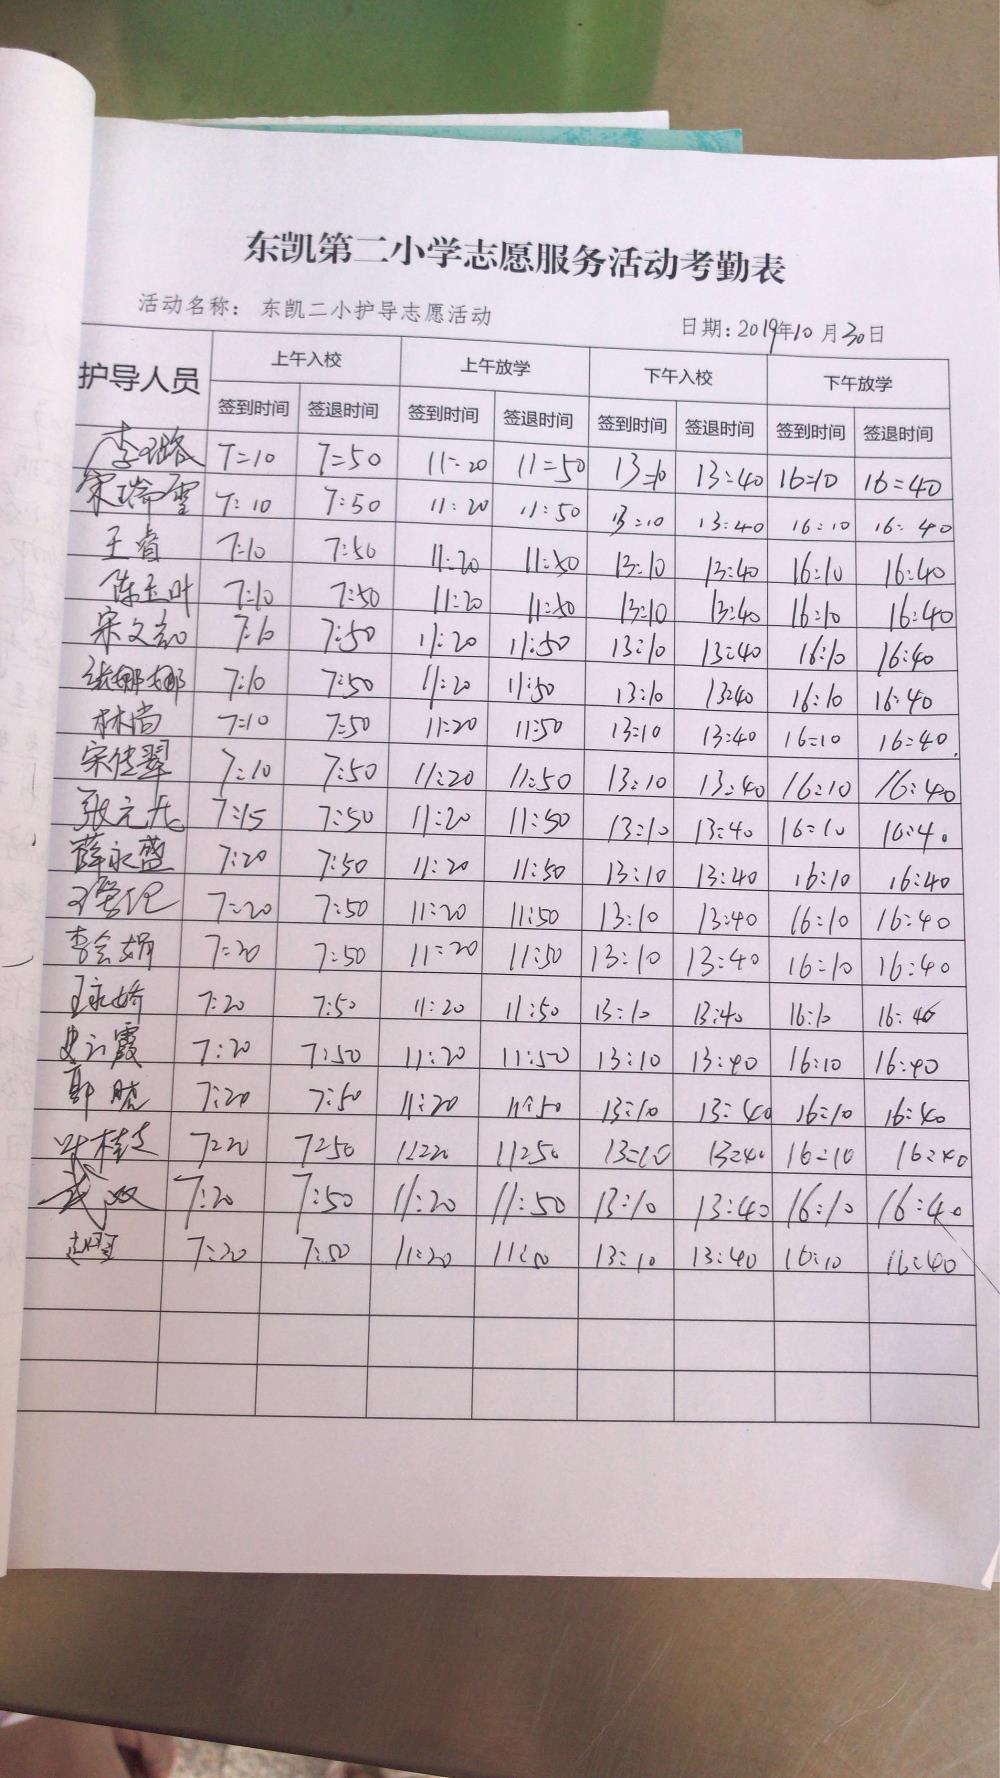 东凯第二小学志愿服务活动考勤表
活动名称： 东凯二小护导志愿活动 日期: 2019年10月30日
护导人员 上午入校 上午放学 下午入校 下午放学
签到时间 签退时间 签到时间 签退时间 签到时间 签退时间 签到时间 签退时间
李璐 7:10 7:50 11:20 11:50 13:10 13:40 16:10 16:40
宋瑞雪 7:10 7:50 11:20 11:50 13:10 13:40 16:10 16:40
王睿 7:10 7:50 11:20 11:50 13:10 13:40 16:10 16:40
陈玉叶 7:10 7:50 11:20 11:50 13:10 13:40 16:10 16:40
宋文 7:10 7:50 11:20 11:50 13:10 13:40 16:10 16:40
张娜娜 7:10 7:50 11:20 11:50 13:10 13:40 16:10 16:40
林尚 7:10 7:50 11:20 11:50 13:10 13:40 16:10 16:40
宋佳翠 7:10 7:50 11:20 11:50 13:10 13:40 16:10 16:40
张元 7:15 7:50 11:20 11:50 13:10 13:40 16:10 16:40
薛永盛 7:20 7:50 11:20 11:50 13:10 13:40 16:10 16:40
7:20 7:50 11:20 11:50 13:10 13:40 16:10 16:40
李会娟 7:20 7:50 11:20 11:50 13:10 13:40 16:10 16:40
王永娇 7:20 7:50 11:20 11:50 13:10 13:40 16:10 16:40
史云霞 7:20 7:50 11:20 11:50 13:10 13:40 16:10 16:40
郭晓 7:20 7:50 11:20 11:50 13:10 13:40 16:10 16:40
叶桂芝 7:20 7:50 11:20 11:50 13:10 13:40 16:10 16:40
武双 7:20 7:50 11:20 11:50 13:10 13:40 16:10 16:40
7:20 7:50 11:20 11:50 13:10 13:40 16:10 16:40